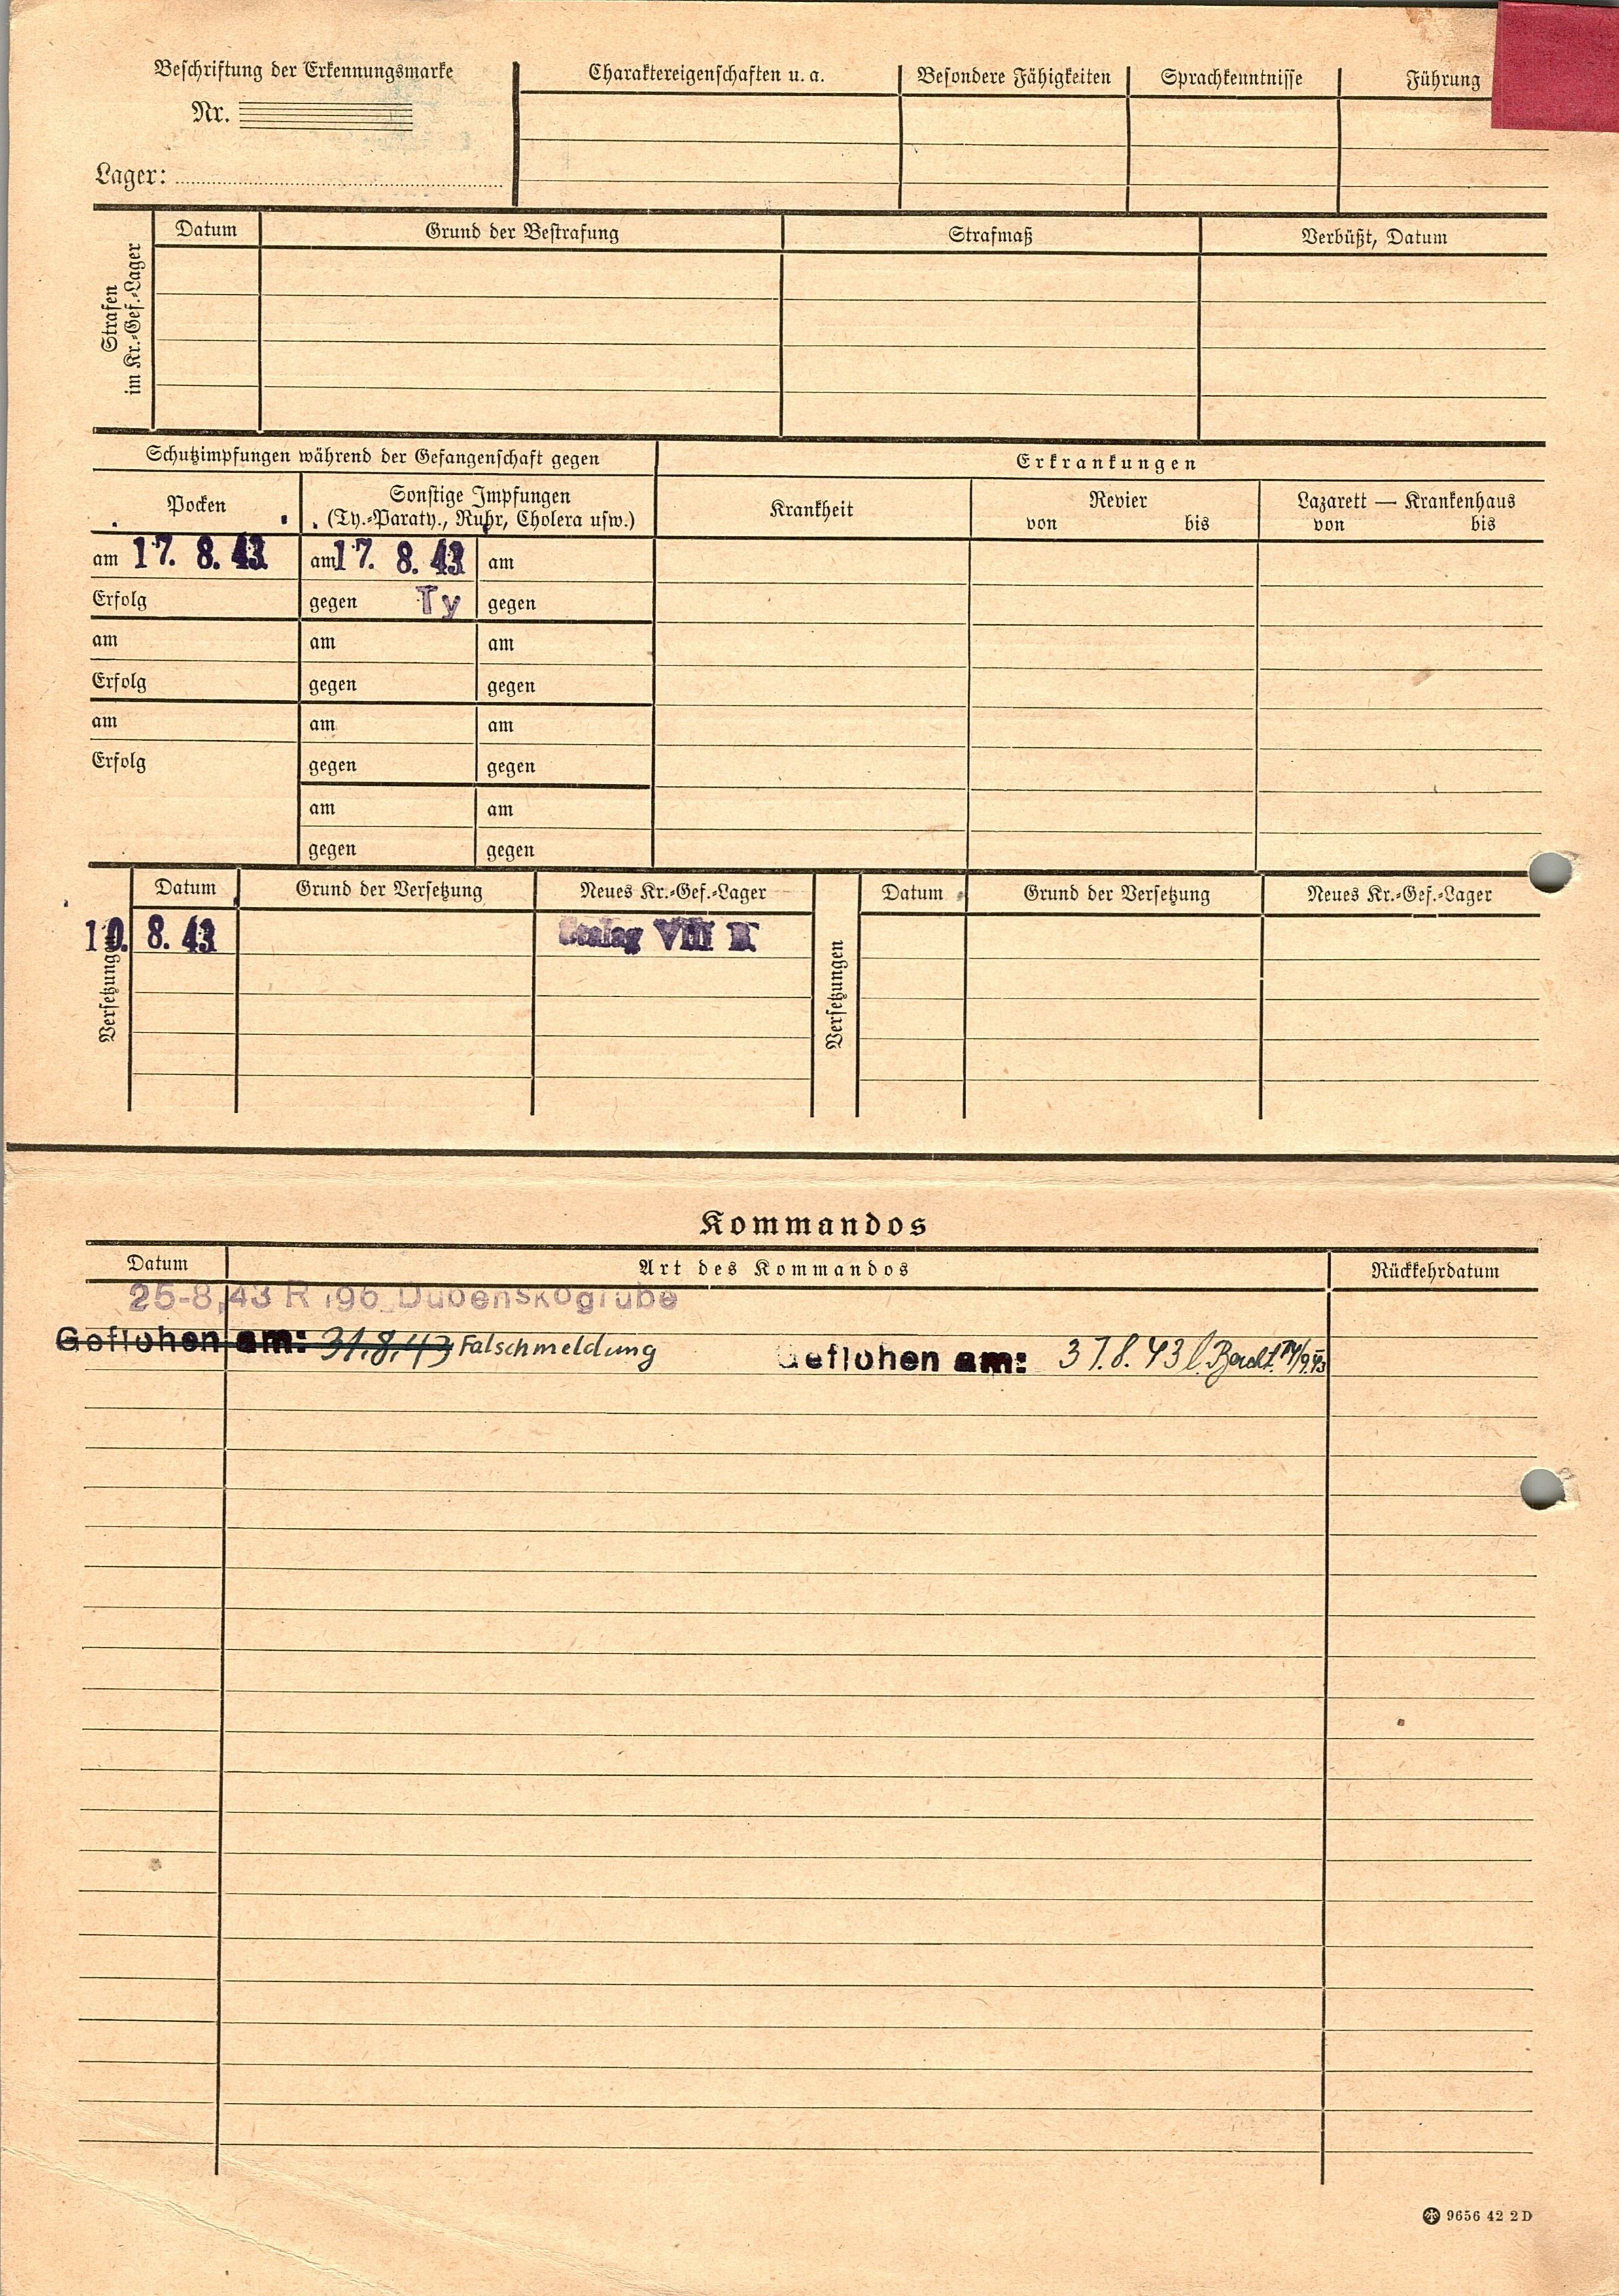 Beschriftung der Erkennungsmarke
Nr.
Lager:
Charaktereigenschaften u. a.
Besondere Fähigkeiten
Sprachkenntnisse
Führung
Strafen
im Kr.-Gef.-Lager
Datum
Grund der Bestrafung
Strafmaß
Verbüßt, Datum
Schutzimpfungen während der Gefangenschaft gegen
Erkrankungen
Pocken
Sonstige Impfungen
(Ty.-Paraty., Ruhr, Cholera usw.)
Krankheit
Revier
von bis
Lazarett — Krankenhaus
von bis
am 17. 8. 43 am 17. 8. 43 am
Erfolg gegen Ty gegen
am am am
Erfolg gegen gegen
am am am
Erfolg gegen gegen
am am
gegen gegen
Versetzungen
Datum Grund der Versetzung Neues Kr.-Gef.-Lager
10. 8. 43 Stalag VIII B
Versetzungen
Datum Grund der Versetzung Neues Kr.-Gef.-Lager
Kommandos
Datum Art des Kommandos Rückkehrdatum
25-8,43 R 196 Dubenskogrube
Geflohen am: 31.8.43 Falschmeldung Geflohen am: 31.8.43 l.
9656 42 2 D